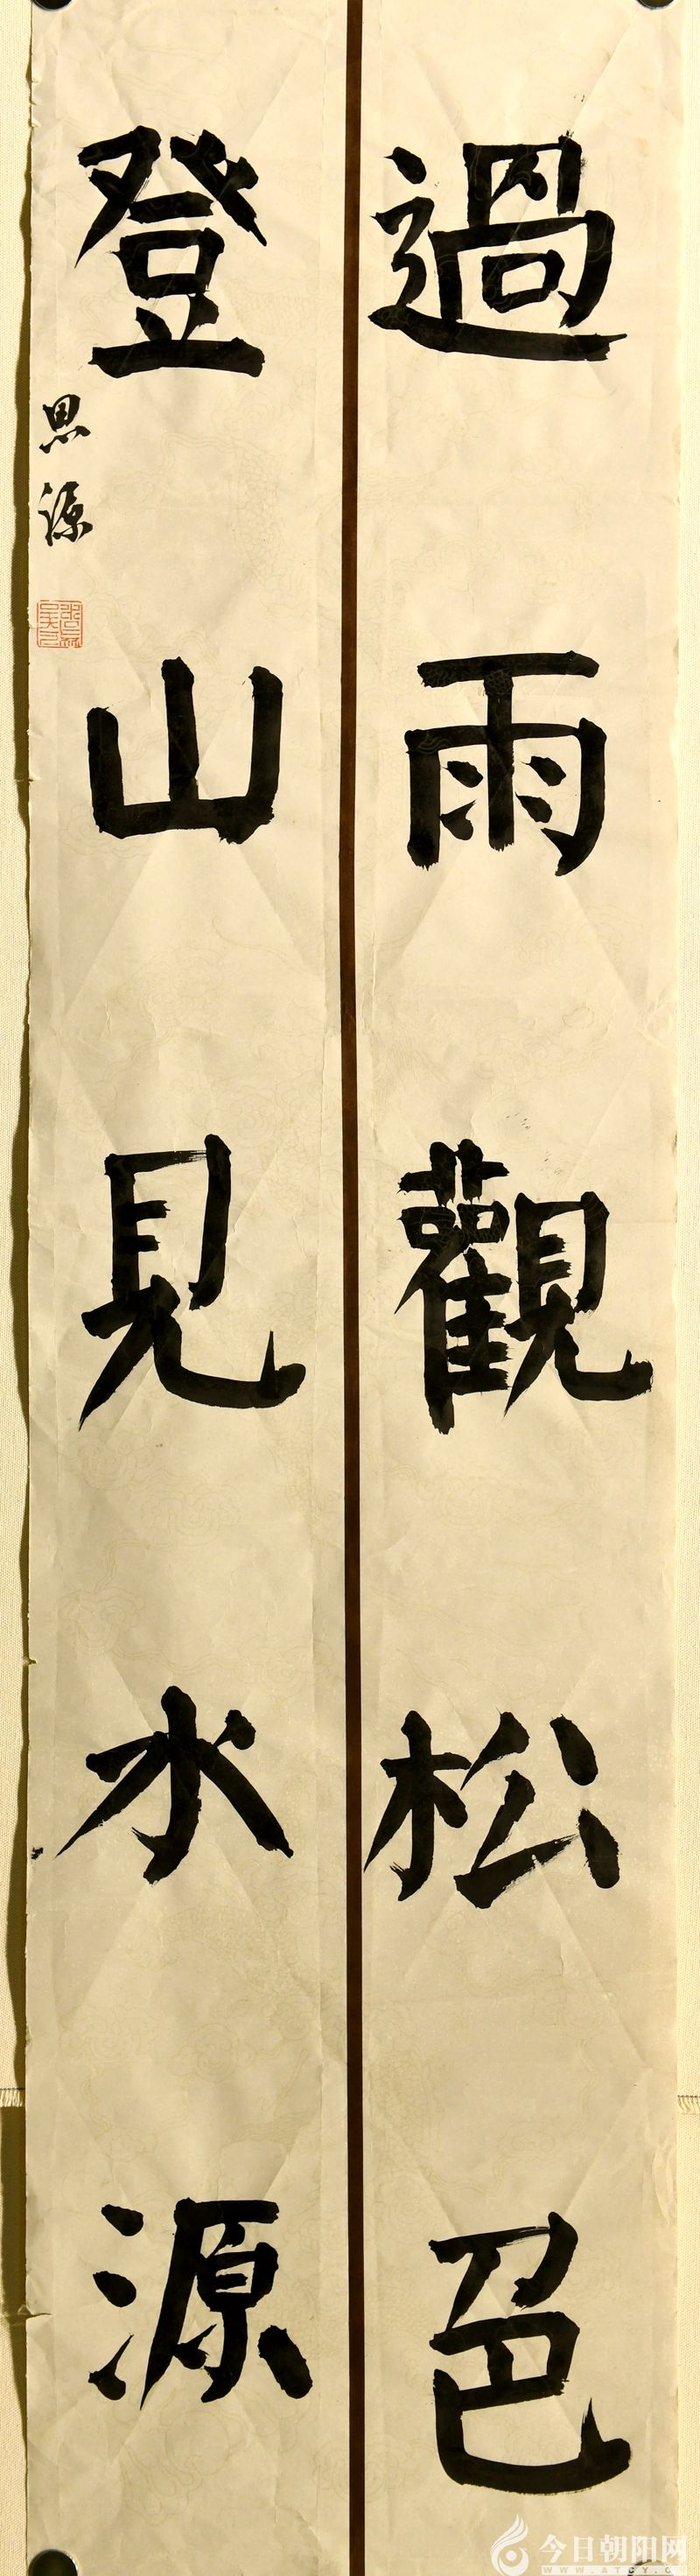 過雨觀松色
登山見水源
思源
今日朝阳网